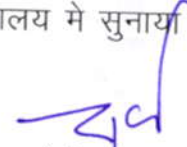 लय मे सुनाया